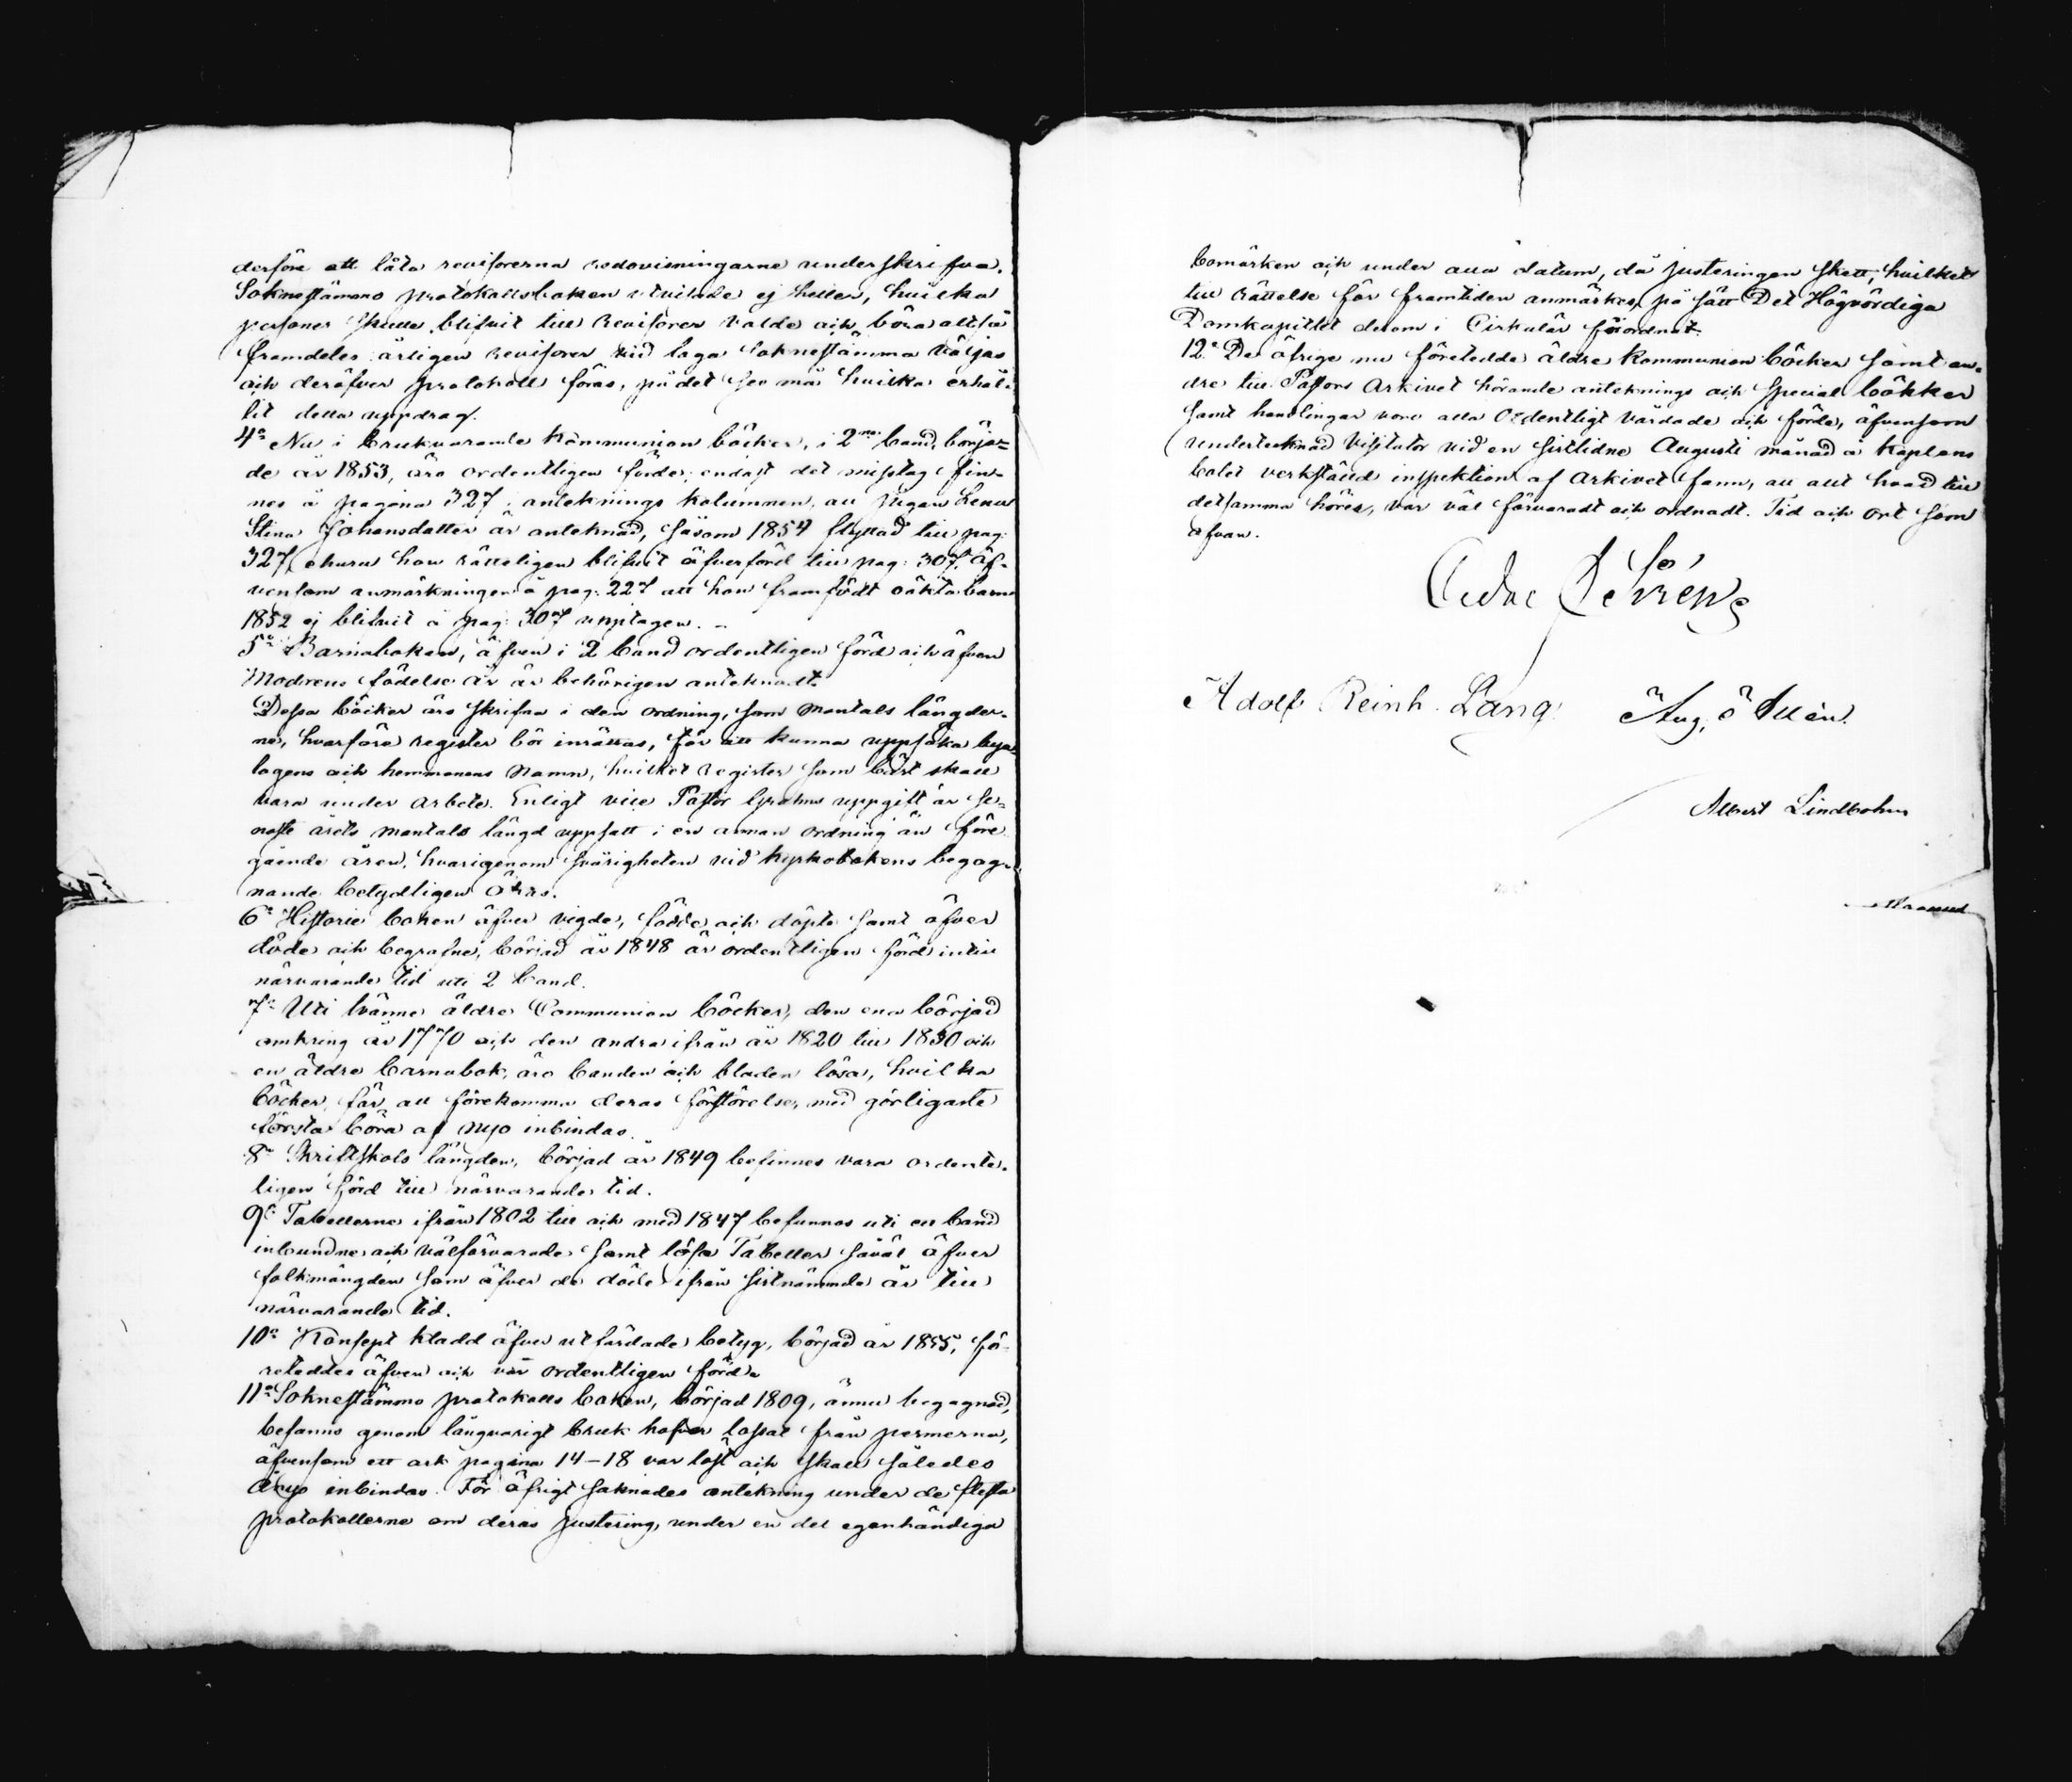 derföre att låta revisorerna redovisningarne underskrifva.
Soknestämmo protokollsboken utvisade ej heller, hvilka
personer skulle blifvit till Revisorer valde och böra altså
framdeles årligen revisorer vid laga Soknestämma väljas
och deröfver protokoll föras, på det se må hvilka erhål-
lit detta uppdrag.
4o Nu i brukvarande Kommunion böcker, i 2ne band, börja-
de år 1853, äro ordentligen förde; endast det misstag fin-
nes å pagina 327 antecknings kolumnen, att pigan Lena
Stina Johansdotter är antecknad, såsom 1854 flyttad till pag:
327, ehuru hon rätteligen blifvit öfverförd till pag: 307. äf-
vensom anmärkningen å pag: 227 att hon framfödt oäkta barn
1852 ej blifvit å pag: 307 upptagen. -
5o Barnaboken, äfven i 2 band ordentligen förd och äfven
Modrens födelse år är behörigen antecknadt.
Dessa böcker äro skrifna i den ordning, som Mantals längder-
ne, hvarföre register bör inrättas, för att kunna uppsöka bya-
lagens och hemmanens Namn, hvilket register som bäst skall
vara under arbete. Enligt vice Pastor uppgift är se-
naste årets Mantals längd uppsatt i en annan ordning än före
gående åren, hvarigenom svårigheten vid kyrkobokens begag-
nande betydligen ökas.
6o Historie boken öfver vigde, födde och döpte samt öfver
döde och begrafne, börjad år 1848 är ordentligen förd intill
närvarande tid uti 2 band.
7o Uti tvänne äldre Communion böcker, den ena börjad
omkring år 1770 och den andra ifrån år 1820 till 1830 och
en äldre barnabok, äro banden och bladen lösa, hvilka
böcker, för att förekomma deras förstörelse, med görligaste
första böra af nyo inbindas.
8o Skriftskols längden, börjad år 1849 befinnes vara ordente-
ligen förd till närvarande tid.
9o Tabellerne ifrån 1802 till och med 1847 befunnos uti ett band
inbundne och välförvarade samt lösa Tabeller såväl öfver
folkmängden som öfver de döde ifrån sistnämnda år till
närvarande tid.
10o Konsept kladd öfver utfärdade betyg, börjad år 1855, fö-
reteddes äfven och var ordentligen förd.
11o Soknestämmo protokolls boken, börjad 1809, ännu begagnad,
befanns genom långvarigt bruk hafva lossat från permerna,
äfvensom ett ark pagina 14-18 var löst och skall således
å nyo inbindas. För öfrigt saknades antekning under de flesta
protokollerne om deras justering, under en del egenhändiga
bomärken och under alla datum, då justeringen skett, hvilket
till rättelse för framtiden anmärkes, på sätt Det Högvördiga
Domkapitlet derom i Cirkulär förordnat.
12o De öfrige nu företedde äldre Kommunion böcker samt an-
dre till Pastors Arkivet hörande anteknings och Special böcker
samt handlingar voro alla Ordentligt vårdade och förde, äfvensom
undertecknad Visitator vid en sistlidne Augusti månad å Kaplans
bolet verkställd inspektion af Arkivet fann, att allt hvad till
detsamma hörer, var väl förvaradt och ordnadt. Tid och ort som
ofvan.
Adolf Reinh. Lang. Aug.
Albert Lindbohm